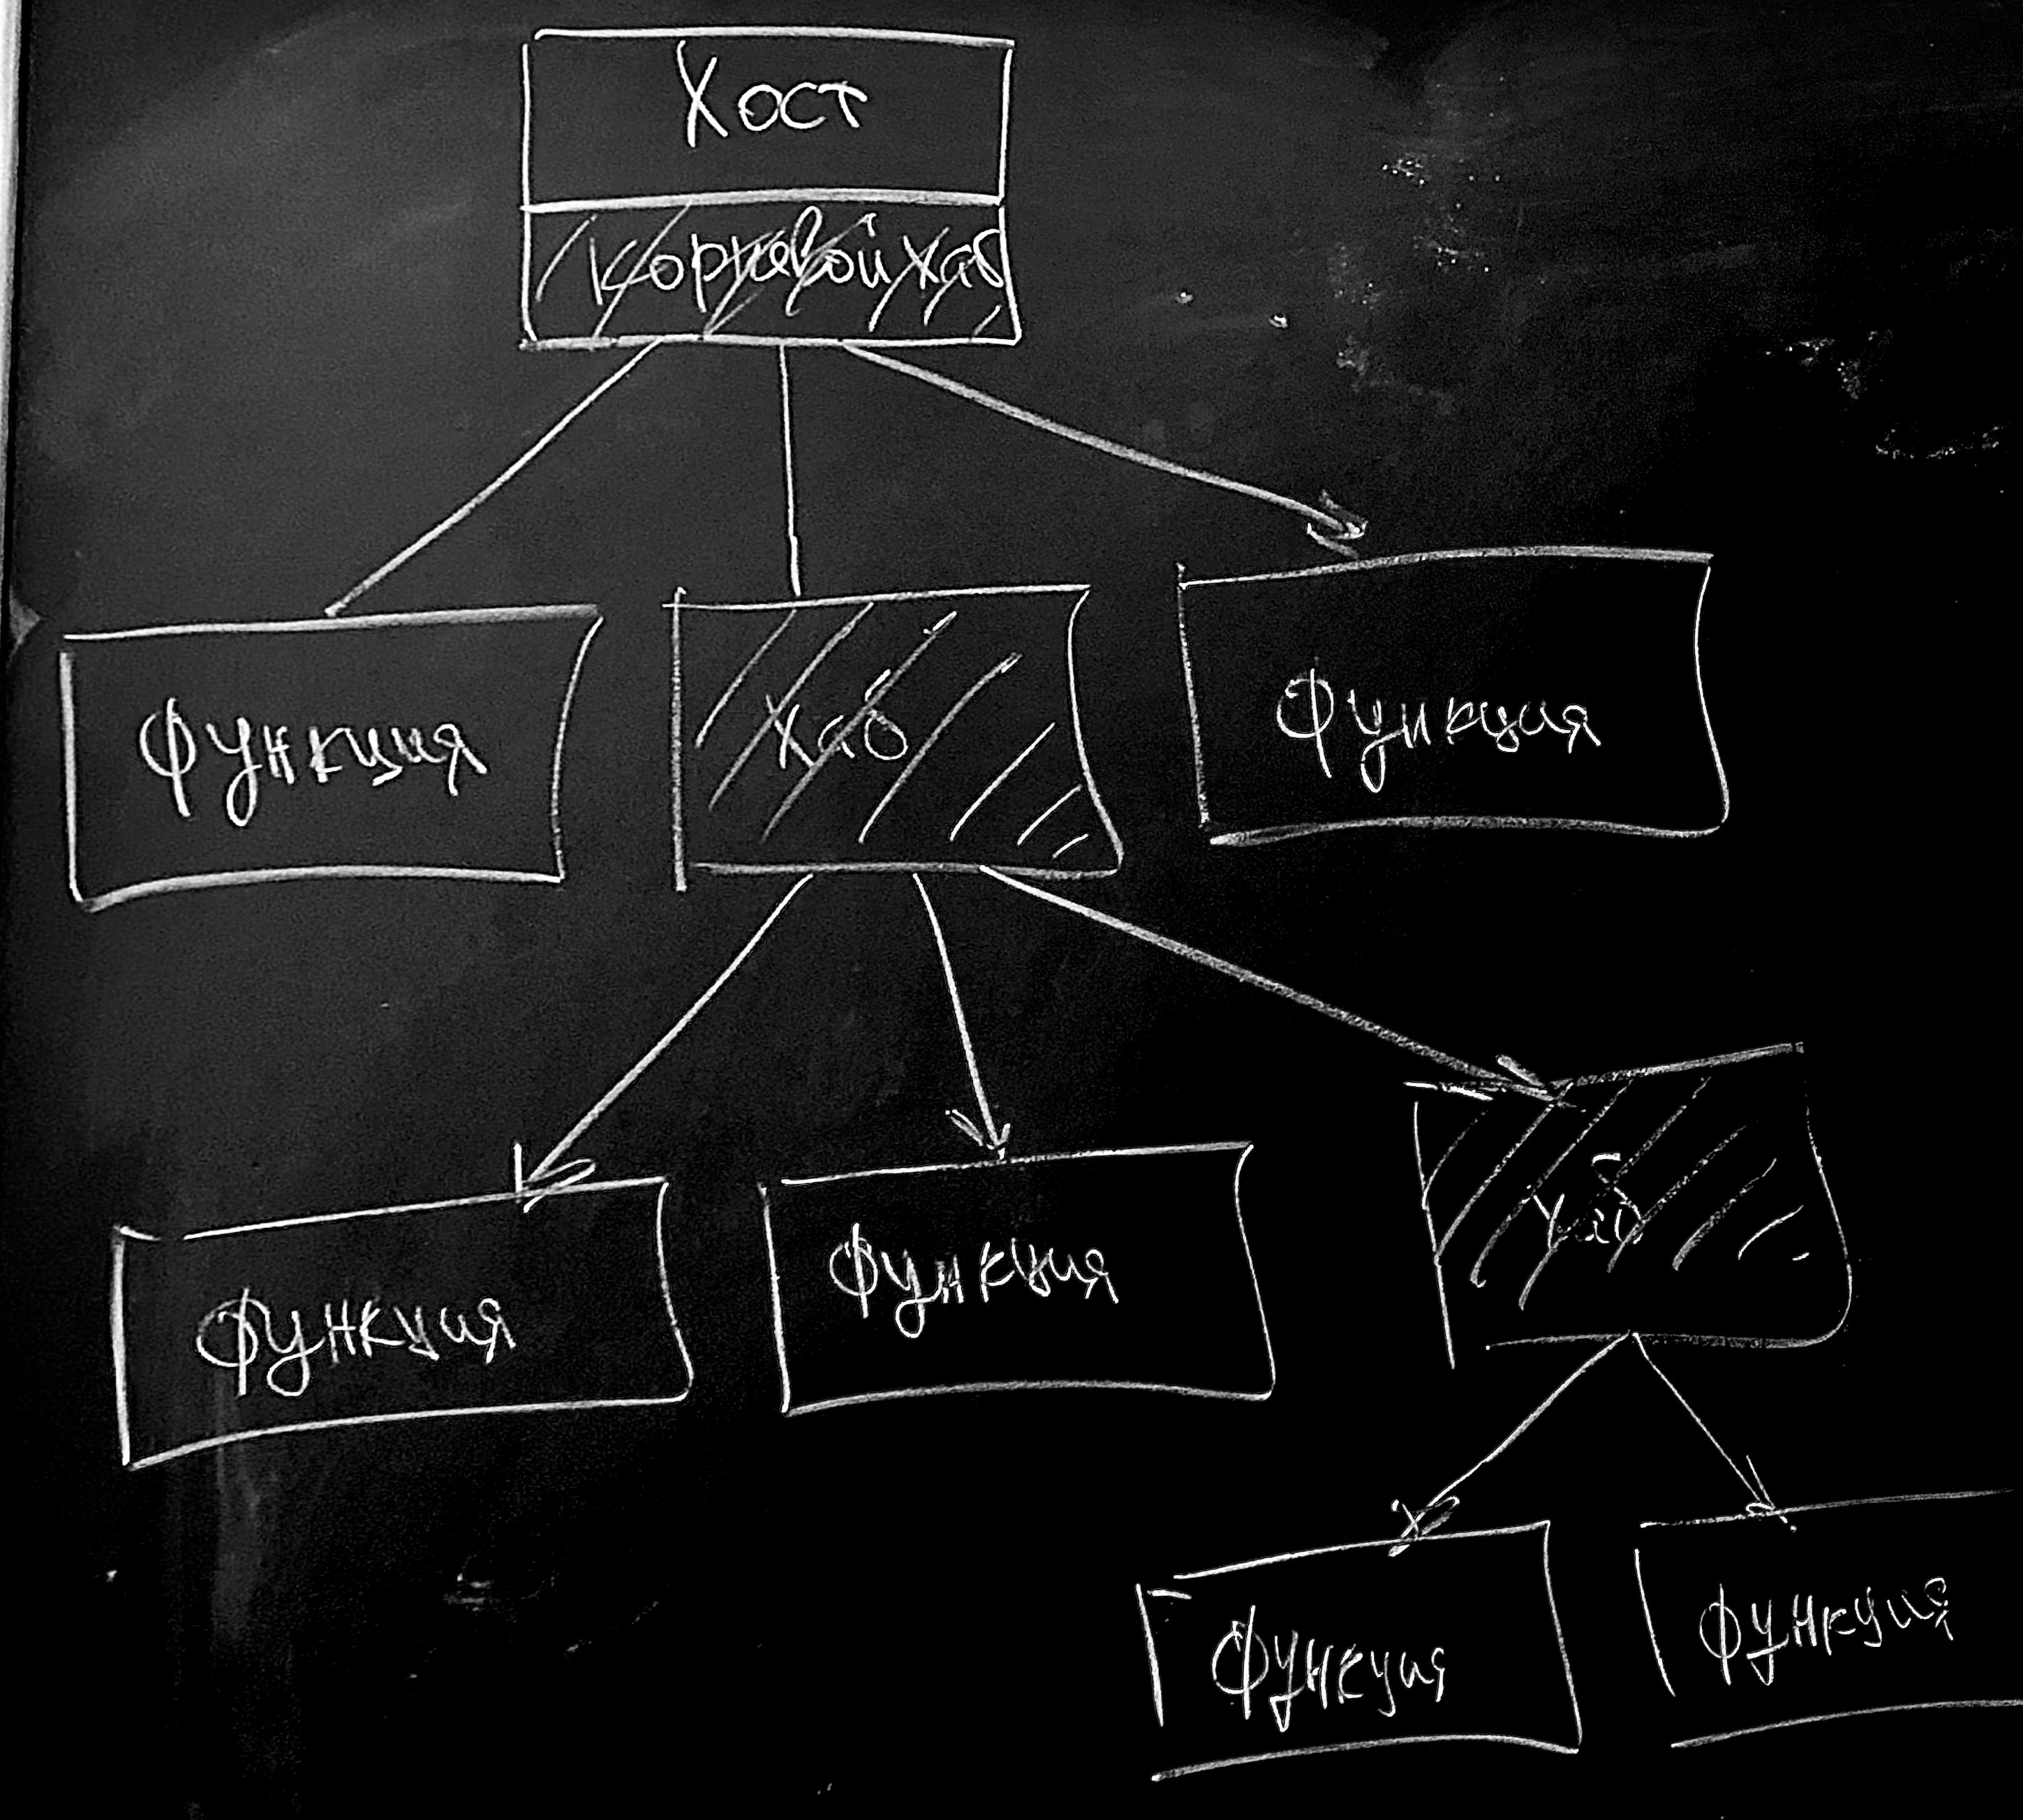 Хост
Корневой хаб
Функция
Хаб
Функция
Функция
Функция
Хаб
Функция
Функция